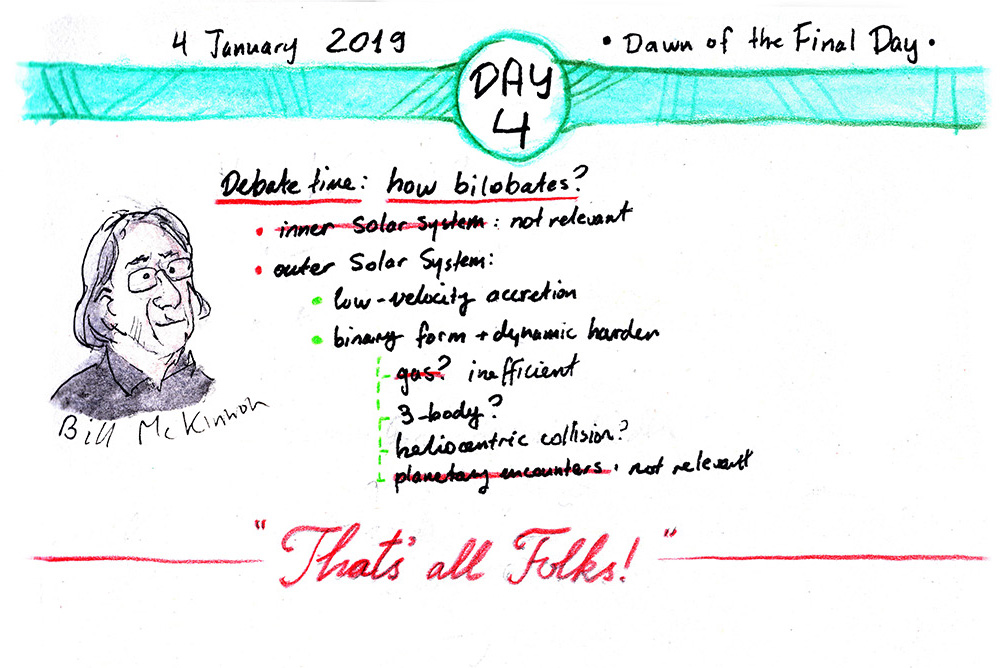 4 January 2019
• Dawn of the Final Day •
DAY
4
Debate time: how bilobates?
• inner Solar System: not relevant
• outer Solar System:
• low-velocity accretion
• binary form + dynamic harden
- gas? inefficient
- 3-body?
- heliocentric collision?
- planetary encounters. not relevant
Bill McKinnon
"Thats' all Folks!"